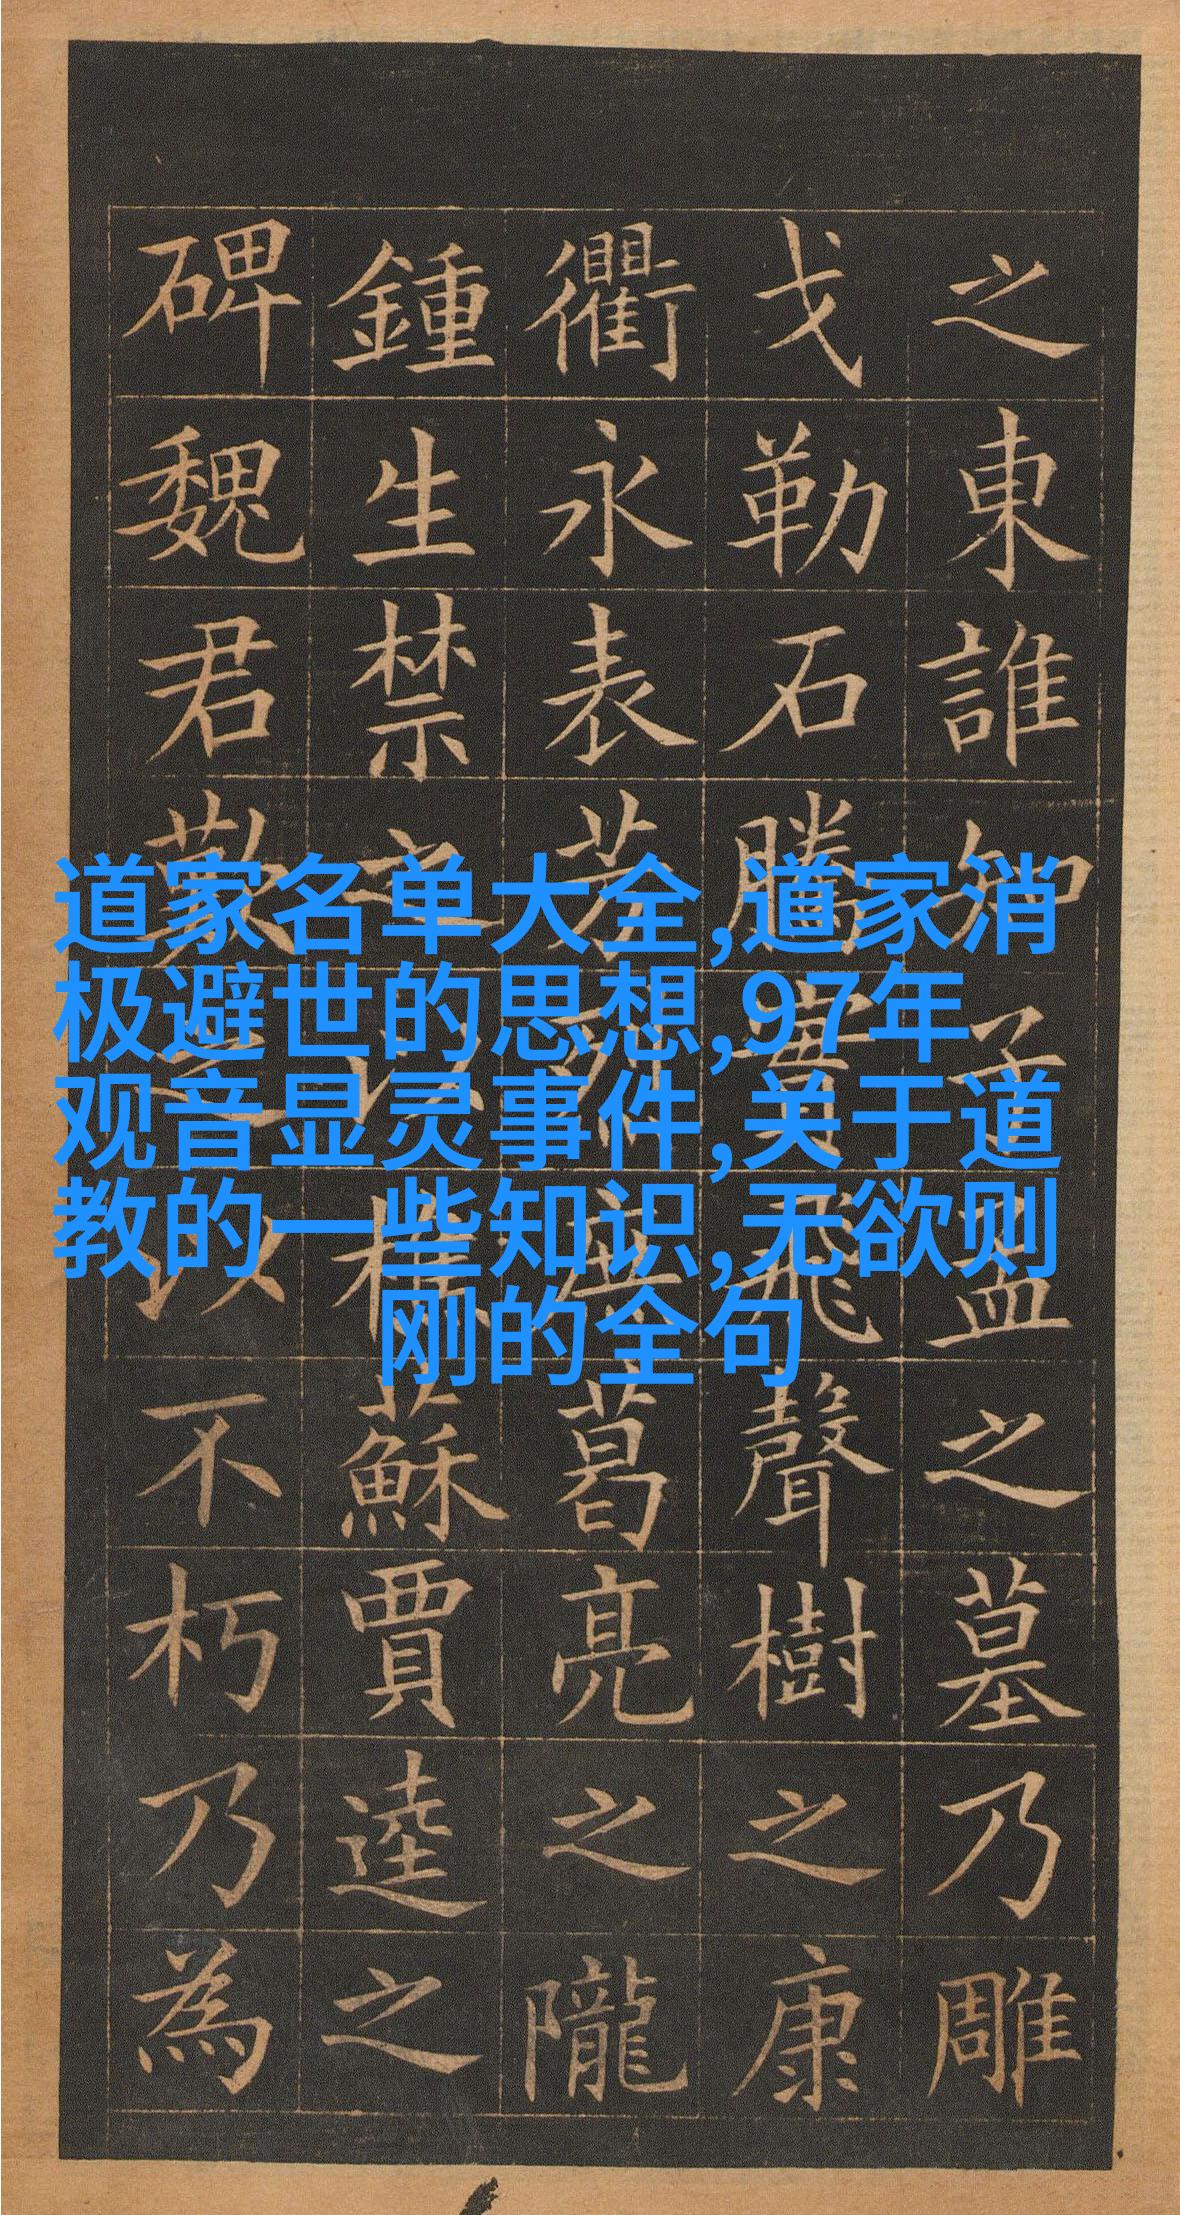 之東誰知子孟之墓乃雕
戈勒石騰實飛聲樹之康
衢永表芳無葛亮之隴
鍾生禁之以樵蘇賈逵之
碑魏君之以不朽乃為
道家名单大全,道家消
极避世的思想,97年
观音显灵事件,关于道
教的一些知识,无欲则
刚的全句